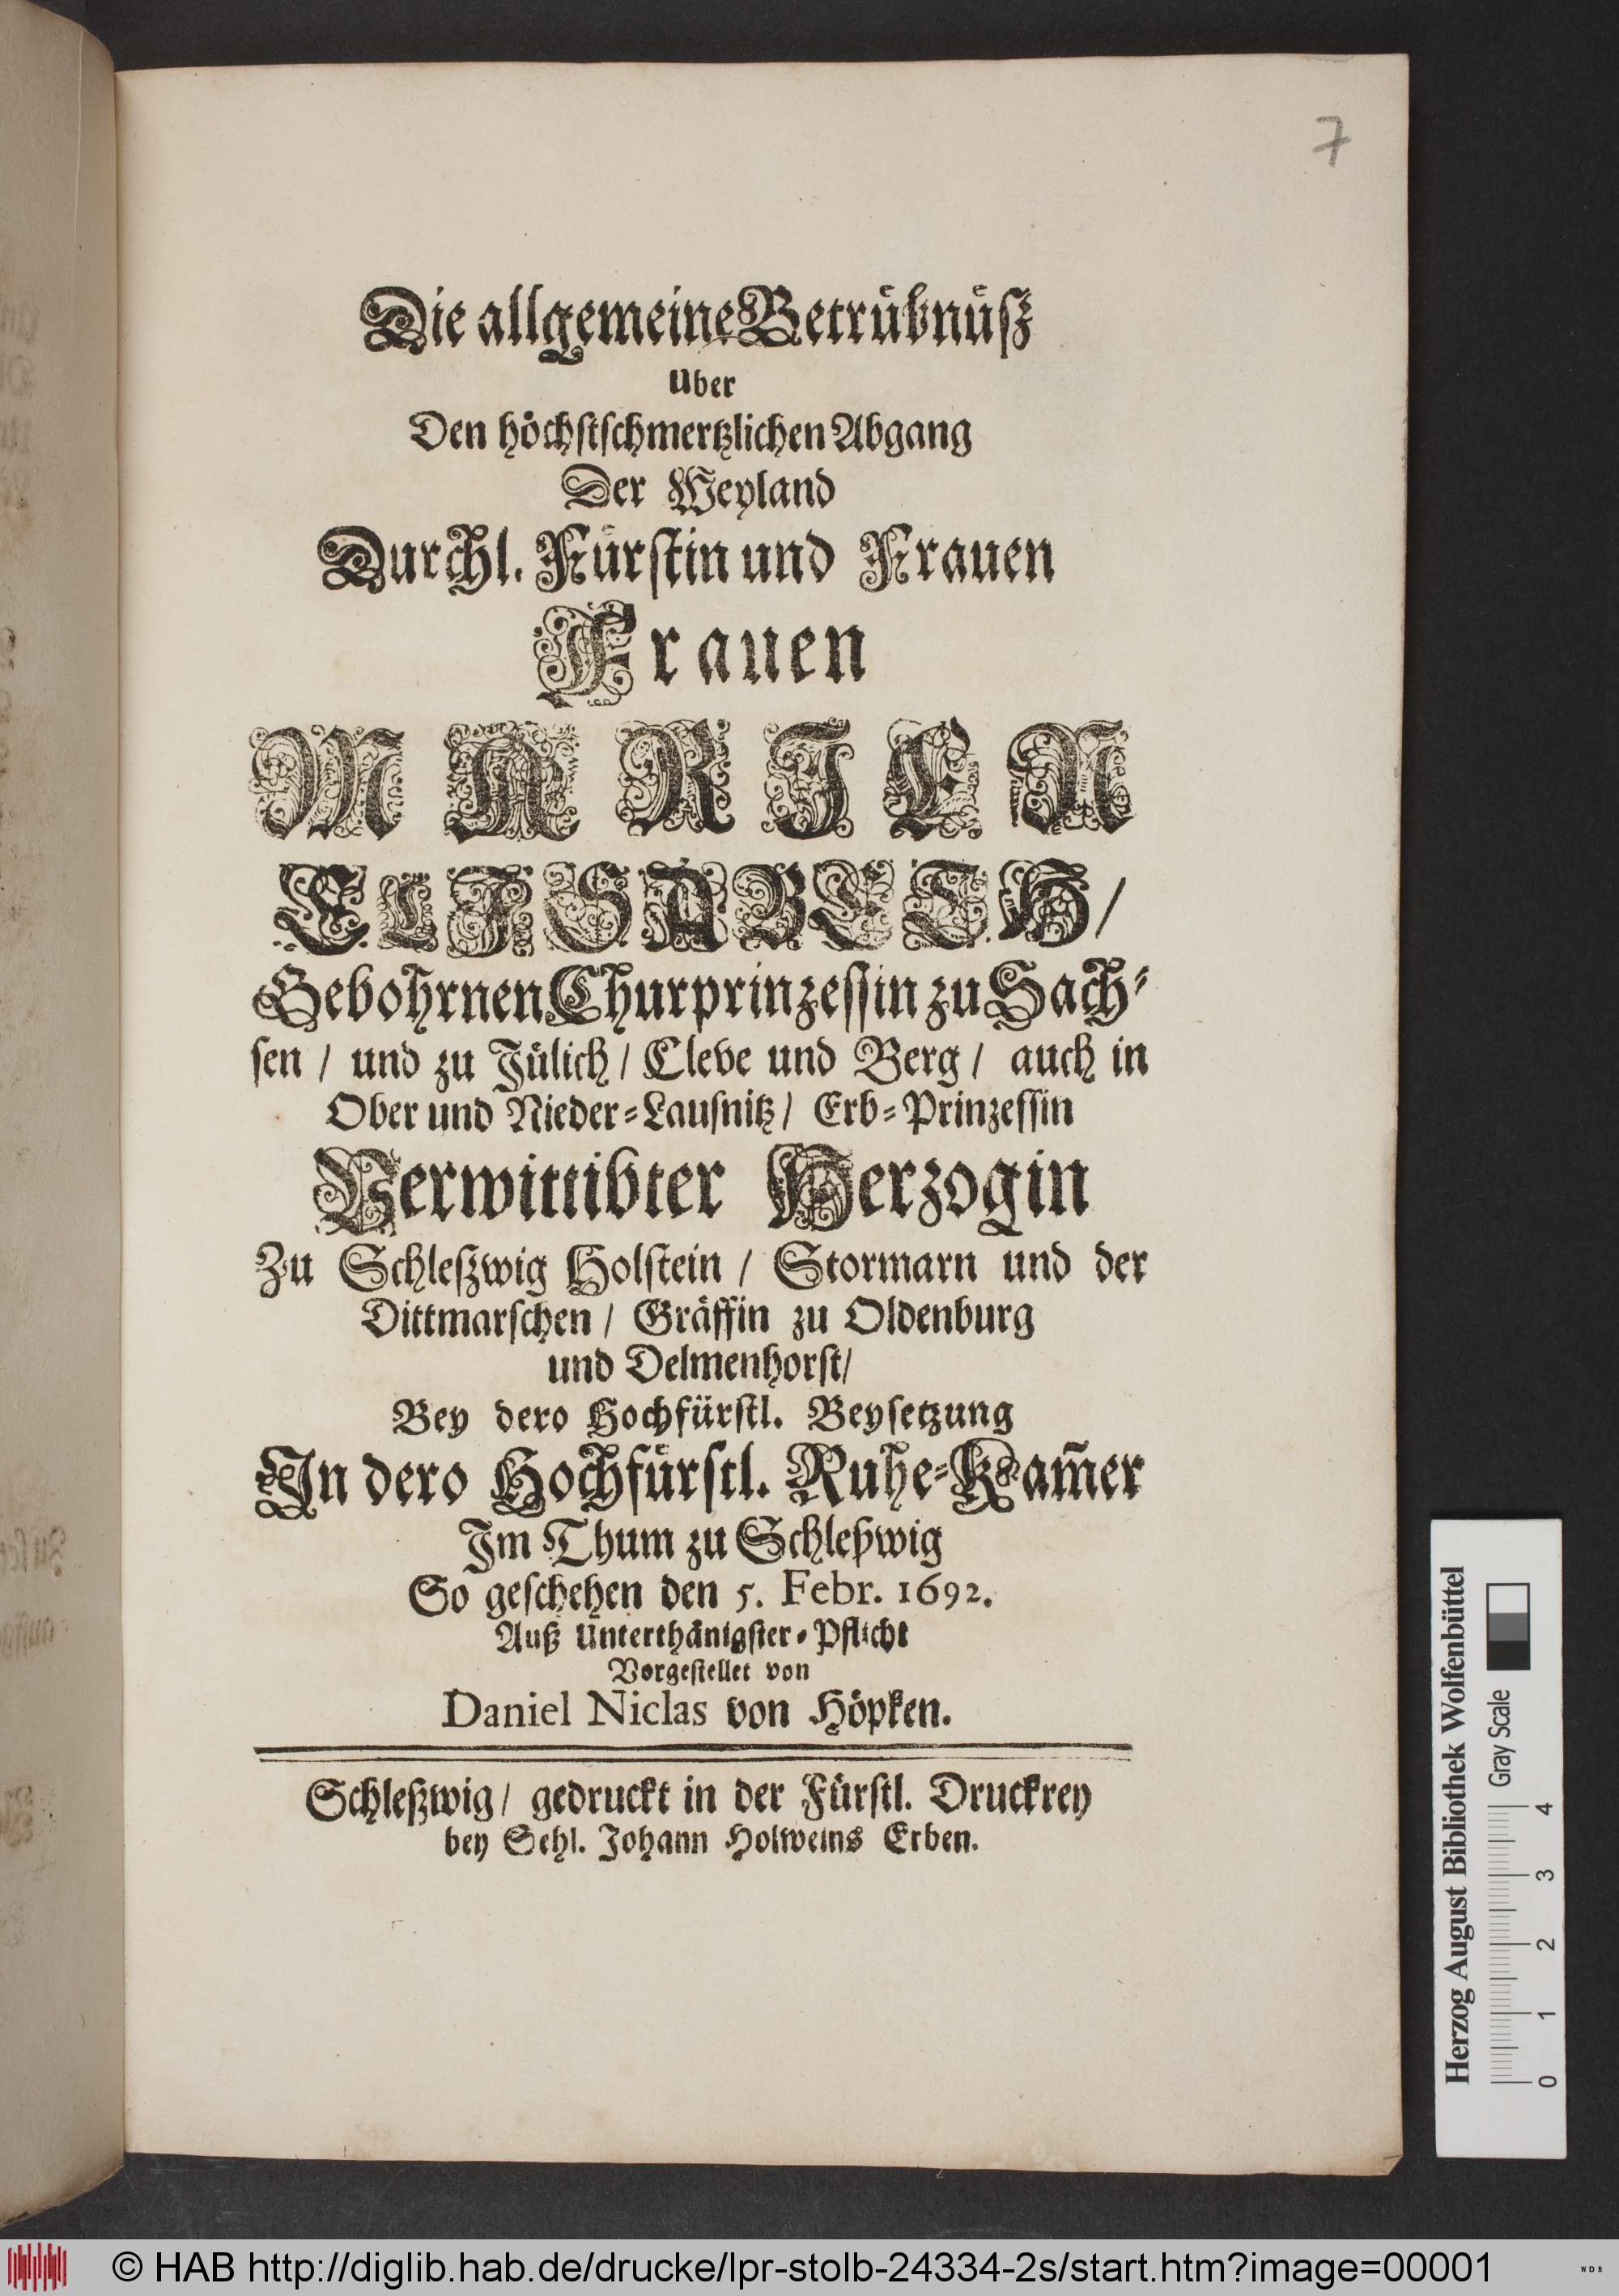 7
Die allgemeine Betrübnüß
Uber
Den höchstschmertzlichen Abgang
Der Weyland
Durchl. Fürstin und Frauen
Frauen
MARIEN
ELISABETH/
Gebohrnen Churprinzessin zu Sach-
sen / und zu Jülich / Cleve und Berg / auch in
Ober und Nieder-Lausnitz / Erb-Prinzessin
Verwittibter Herzogin
Zu Schleßwig Holstein / Stormarn und der
Dittmarschen / Gräffin zu Oldenburg
und Delmenhorst/
Bey dero Hochfürstl. Beysetzung
In dero Hochfürstl. Ruhe-Kam̃er
Im Thum zu Schleßwig
So geschehen den 5. Febr. 1692.
Auß Unterthänigster-Pflicht
Vorgestellet von
Daniel Niclas von Höpken.
Schleßwig / gedruckt in der Fürstl. Druckrey
bey Sehl. Johann Holweins Erben.
Herzog August Bibliothek Wolfenbüttel
Gray Scale
0 1 2 3 4
© HAB http://diglib.hab.de/drucke/lpr-stolb-24334-2s/start.htm?image=00001
WDB